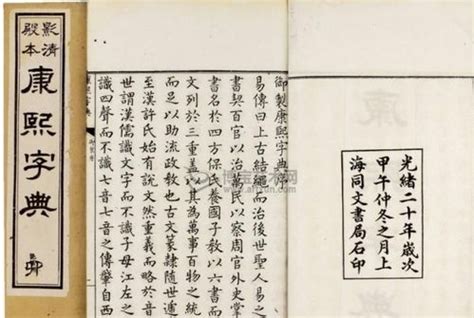 光緒二十年歲次
甲午仲冬之月上
海同文書局石印
御製康熙字典序
易傳曰上古結繩而治後世聖人易之
書契百官以治萬民以察周官外史掌
書名於四方保氏養國子教以六書而
文列於三重蓋以其為萬事百物之統
而足以助流政教也古文篆隸隨世遞
至漢許氏始有說文然重義而略於音
世謂漢儒識文字而不識子母江左之
識四聲而不識七音七音之傳肇自西
康熙字典
影清
殿本
康熙字典
博宝艺术网